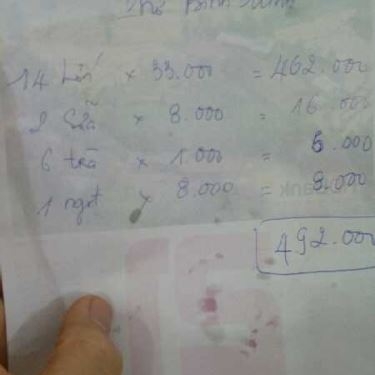 14 lẩu × 33.000 = 462.000
2 sữa × 8.000 = 16.000
6 trà × 1.000 = 6.000
1 ngọt × 8.000 = 8.000
492.000